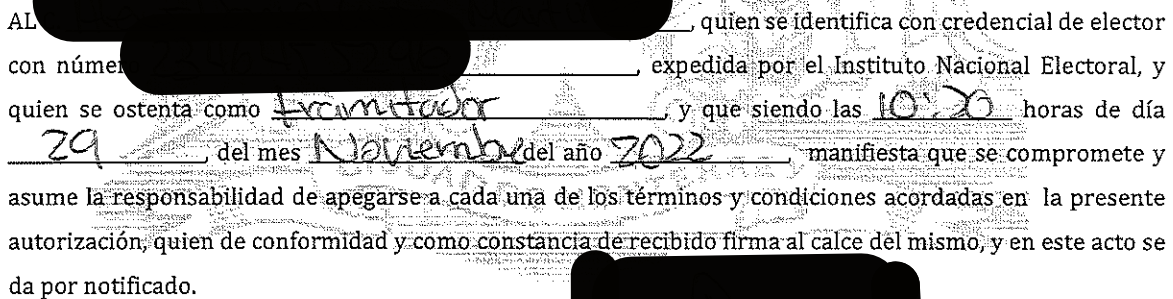 AL , quien se identifica con credencial de elector
con númer , expedida por el Instituto Nacional Electoral, y
quien se ostenta como tramitador , y que siendo las 10:20 horas de día
29 , del mes Noviembre del año 2022 , manifiesta que se compromete y
asume la responsabilidad de apegarse a cada una de los términos y condiciones acordadas en la presente
autorización, quien de conformidad y como constancia de recibido firma al calce del mismo, y en este acto se
da por notificado.